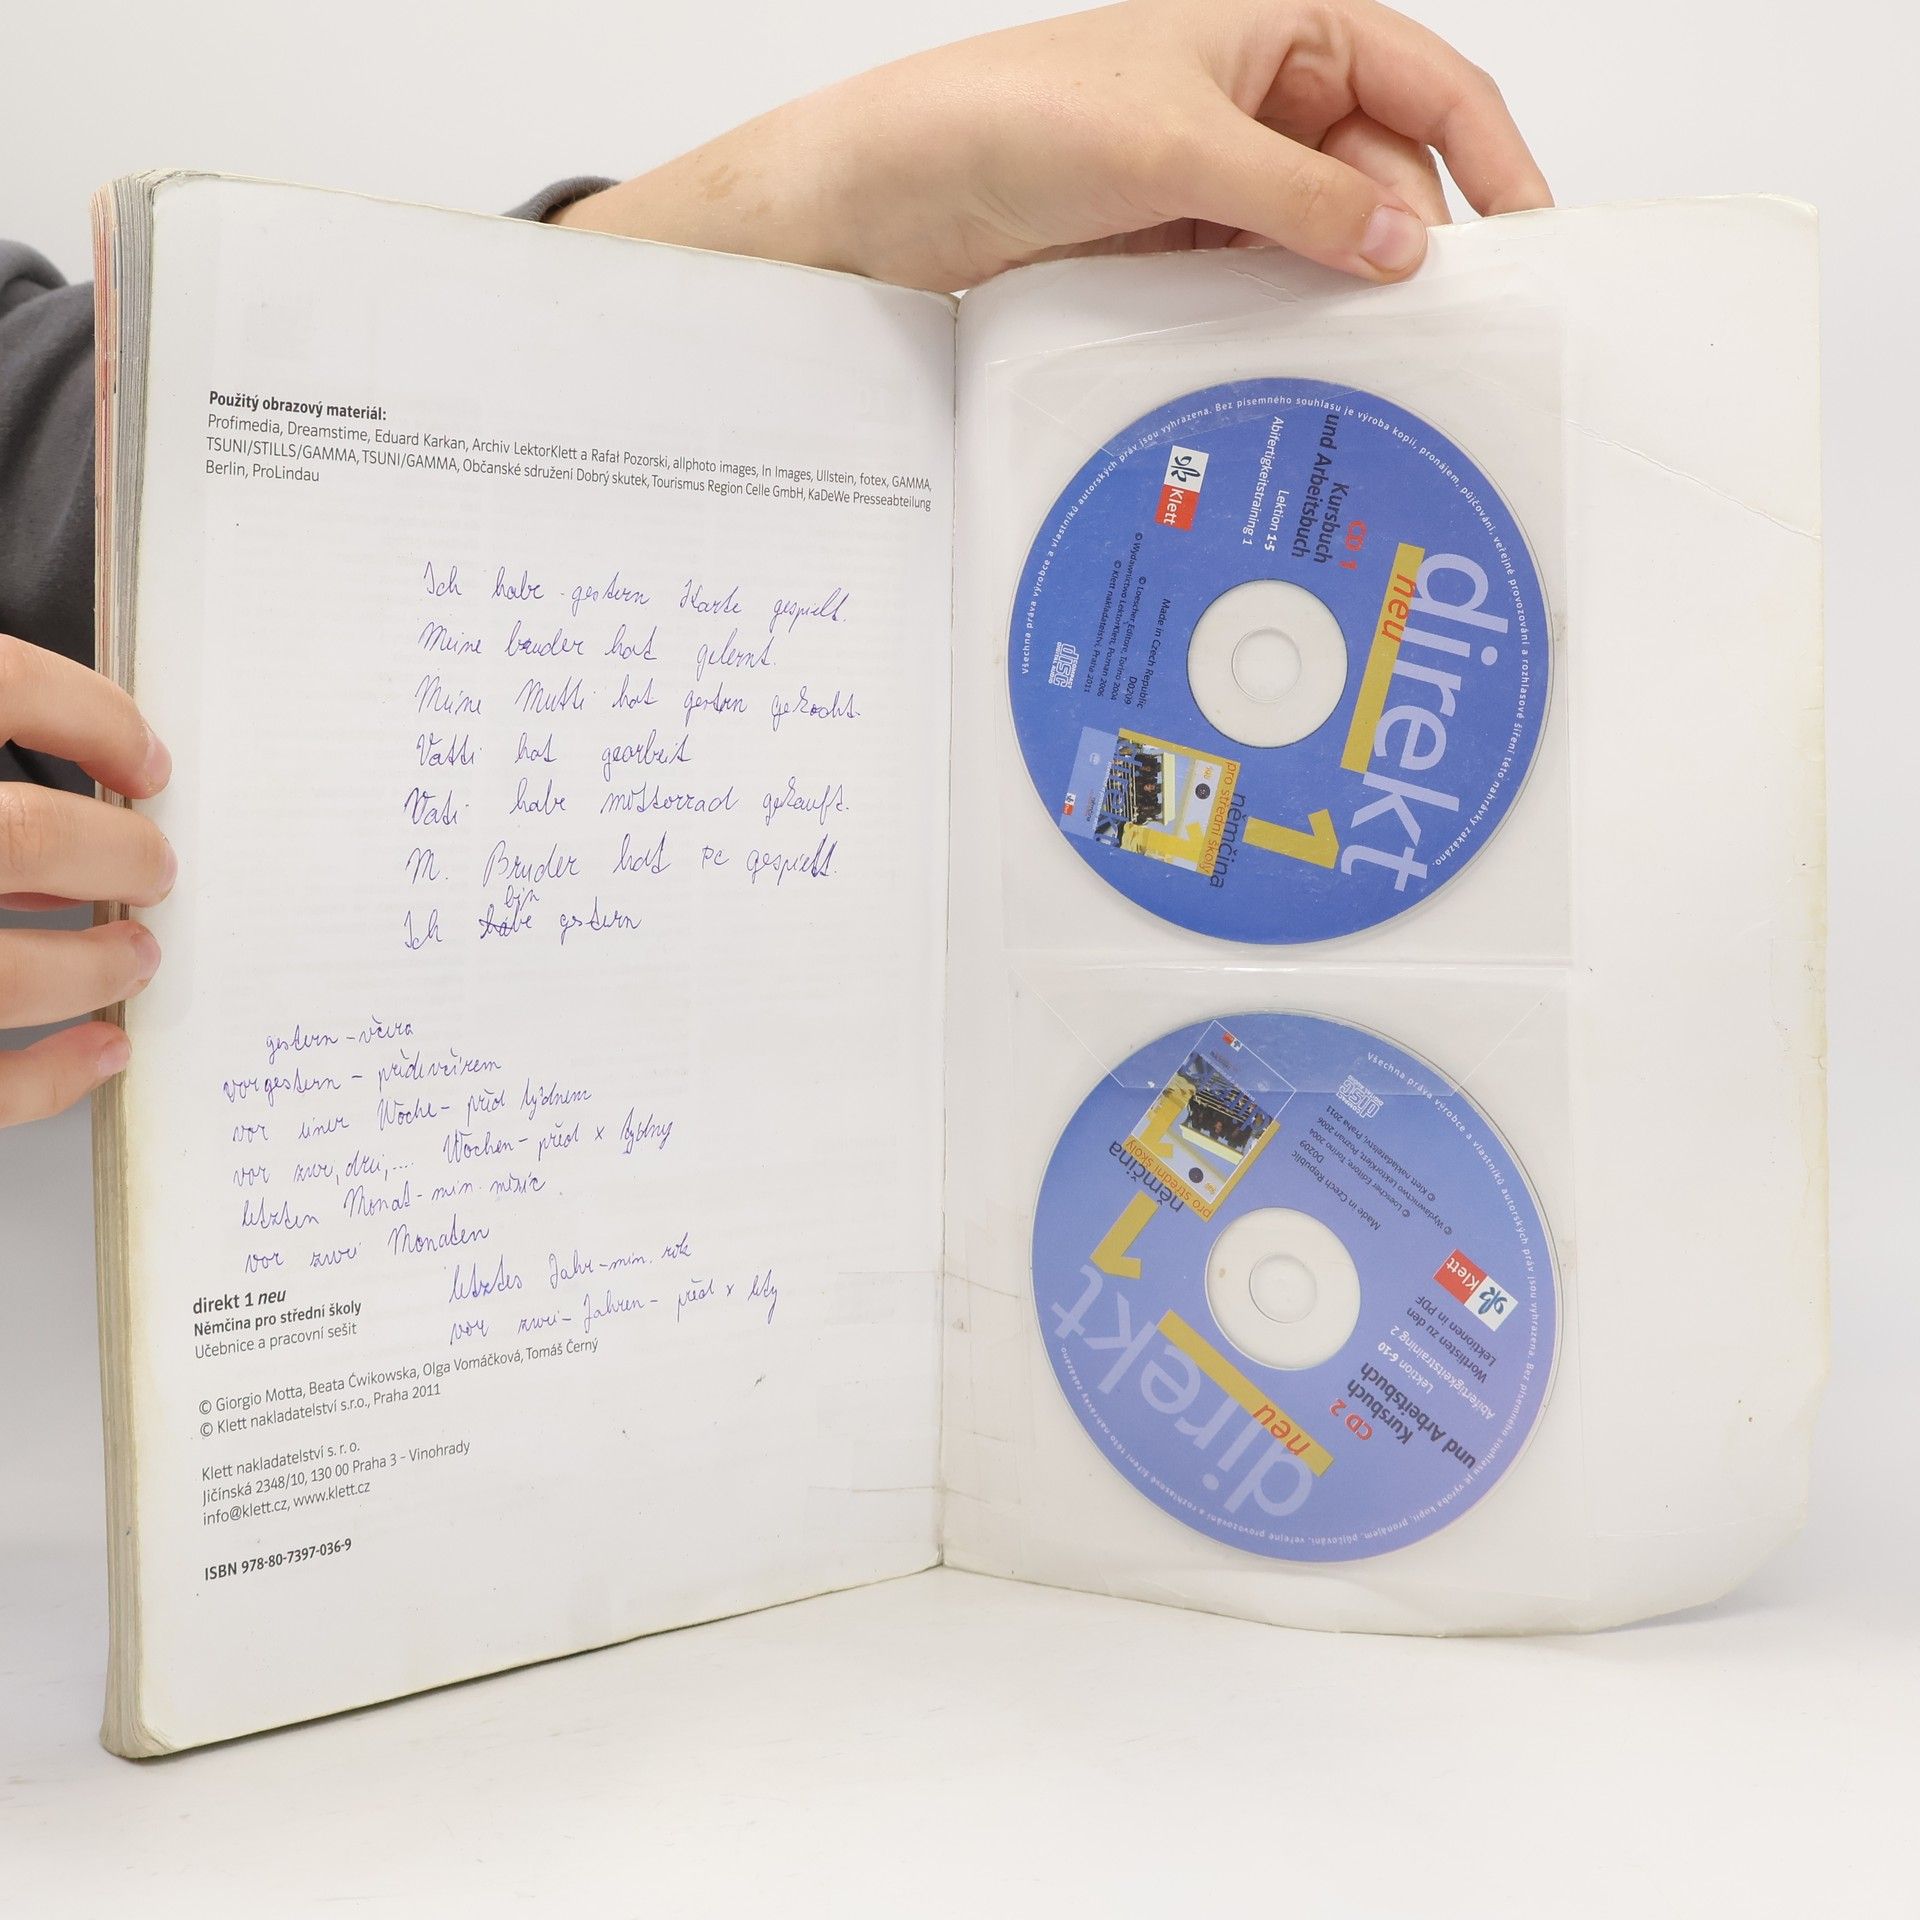 Použitý obrazový materiál:
Profimedia, Dreamstime, Eduard Karkan, Archiv LektorKlett a Rafał Pozorski, allphoto images, In Images, Ullstein, fotex, GAMMA,
TSUNI/STILLS/GAMMA, TSUNI/GAMMA, Občanské sdružení Dobrý skutek, Tourismus Region Celle GmbH, KaDeWe Presseabteilung
Berlin, ProLindau
Ich habe gestern Karte gespielt.
Meine bruder hat gelernt.
Meine Mutti hat gestern gekocht.
Vatti hat gearbeit
Vati habe mottorrad gekauft.
M. Bruder hat PC gespielt.
bin
Ich habe gestern
gestern – včera
vorgestern – předevčírem
vor einer Woche – před týdnem
vor zwei, drei, .... Wochen – před x týdny
letzten Monat – min. měsíc
vor zwei Monaten
letztes Jahr – min. rok
vor zwei – Jahren – před x lety
direkt 1 neu
Němčina pro střední školy
Učebnice a pracovní sešit
© Giorgio Motta, Beata Ćwikowska, Olga Vomáčková, Tomáš Černý
© Klett nakladatelství s.r.o., Praha 2011
Klett nakladatelství s. r. o.
Jičínská 2348/10, 130 00 Praha 3 – Vinohrady
info@klett.cz, www.klett.cz
ISBN 978-80-7397-036-9
direkt
neu
1
CD 1
Kursbuch
und Arbeitsbuch
Lektion 1-5
Abifertigkeitstraining 1
Klett
němčina
pro střední školy
Made in Czech Republic
D0209
© Loescher Editore, Torino 2004
© Wydawnictwo LektorKlett, Poznań 2006
© Klett nakladatelství, Praha 2011
COMPACT
disc
DIGITAL AUDIO
Všechna práva výrobce a vlastníků autorských práv jsou vyhrazena. Bez písemného souhlasu je výroba kopií, pronájem, půjčování, veřejné provozování a rozhlasové šíření této nahrávky zakázáno.
direkt
neu
1
CD 2
Kursbuch
und Arbeitsbuch
Lektion 6-10
Abifertigkeitstraining 2
Wortlisten zu den
Lektionen in PDF
Klett
němčina
pro střední školy
Made in Czech Republic
D0209
© Loescher Editore, Torino 2004
© Wydawnictwo LektorKlett, Poznań 2006
© Klett nakladatelství, Praha 2011
COMPACT
disc
DIGITAL AUDIO
Všechna práva výrobce a vlastníků autorských práv jsou vyhrazena. Bez písemného souhlasu je výroba kopií, pronájem, půjčování, veřejné provozování a rozhlasové šíření této nahrávky zakázáno.